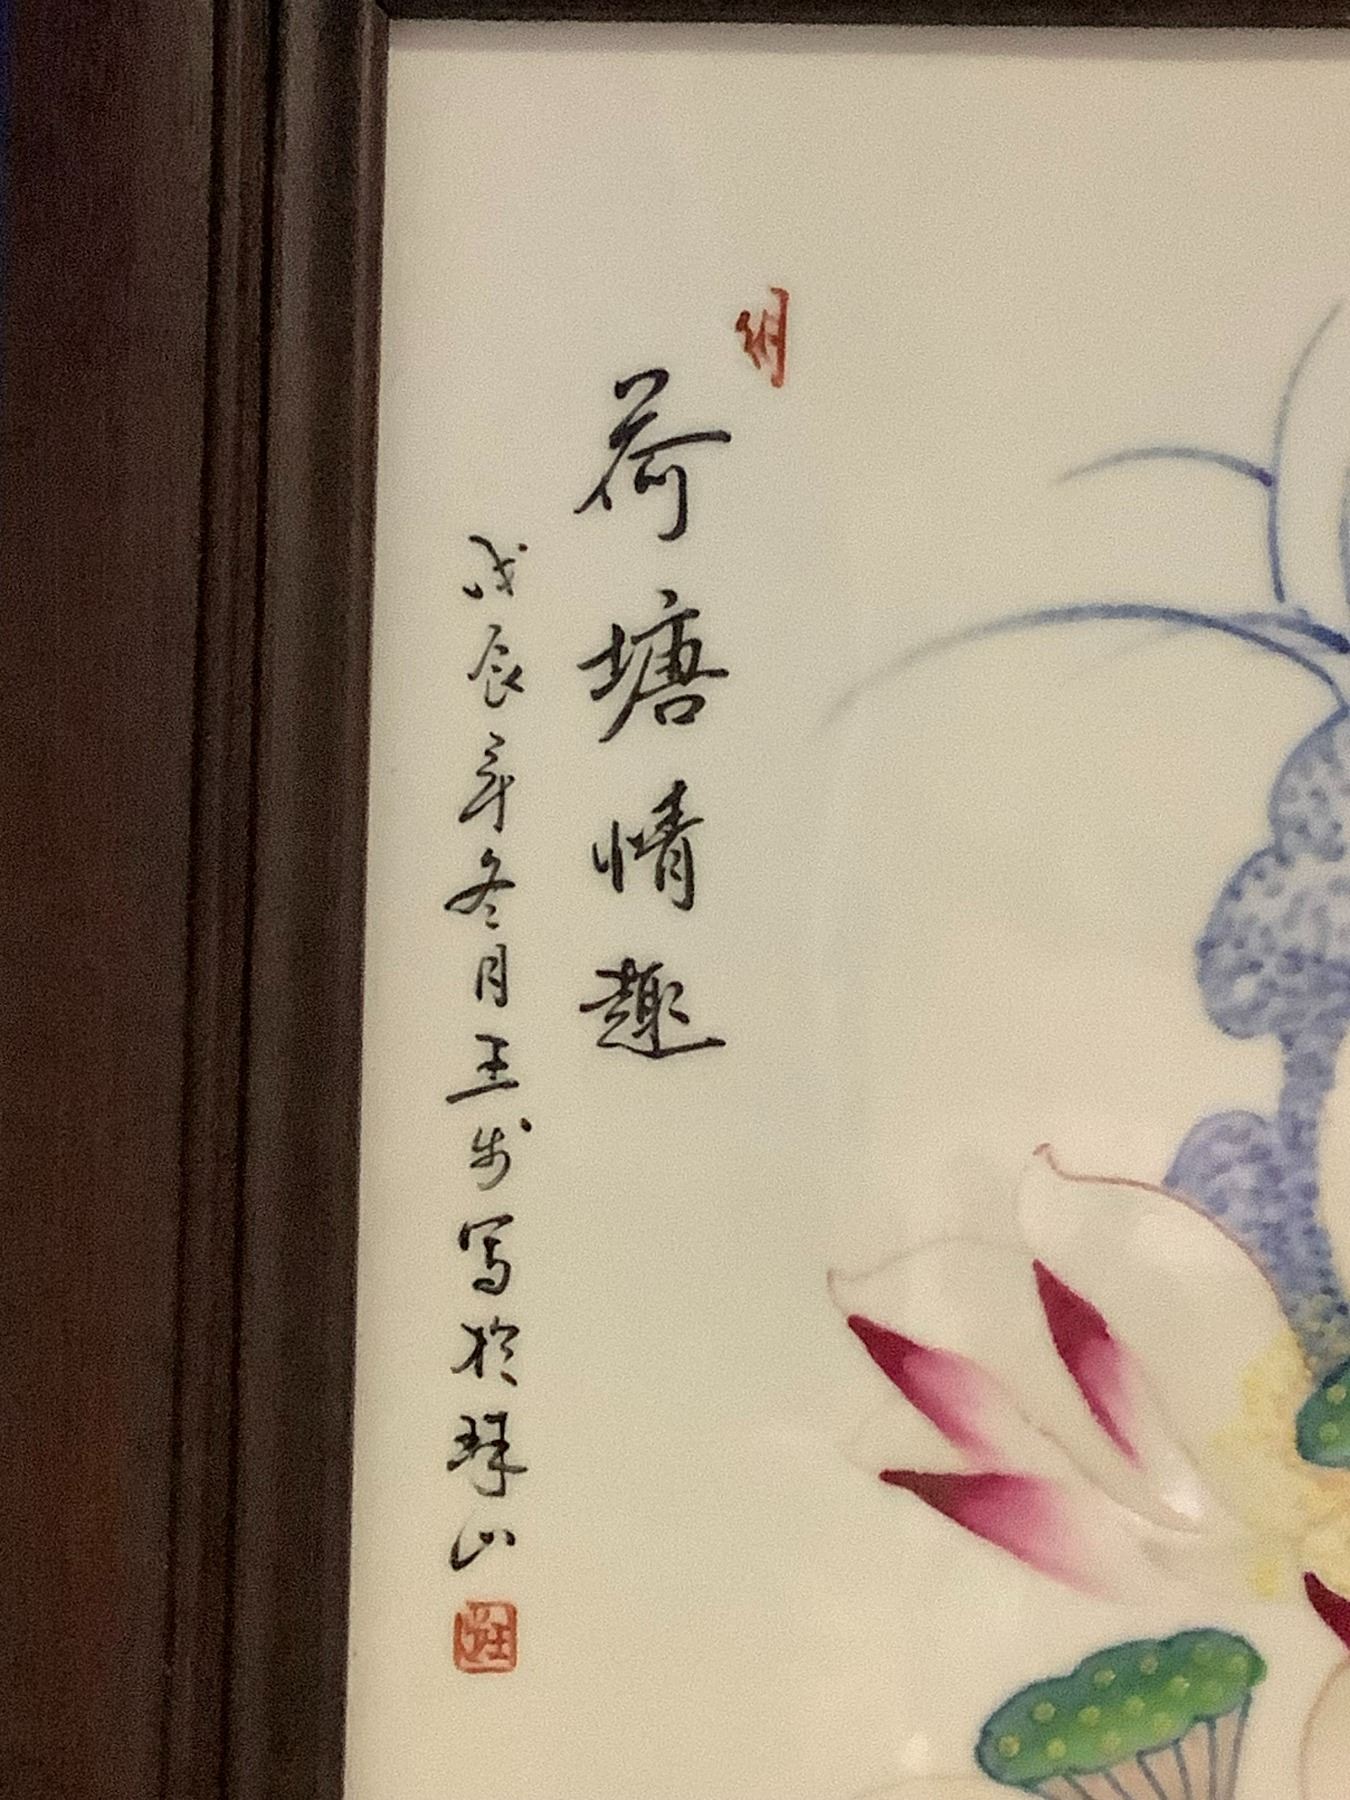 荷塘情趣
戊辰年冬月王步写於珠山